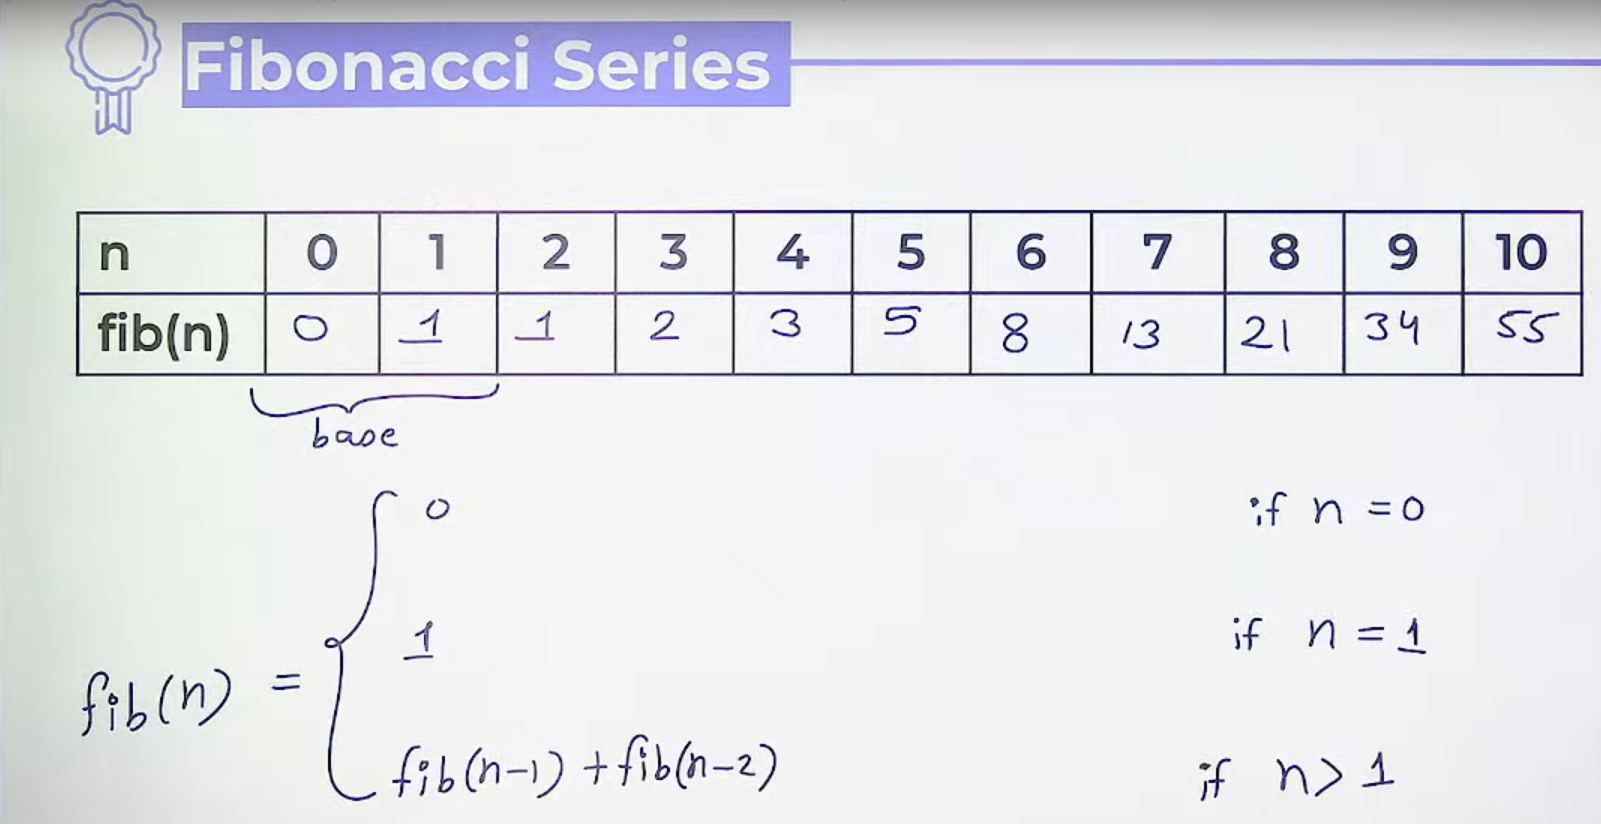 Fibonacci Series
n 0 1 2 3 4 5 6 7 8 9 10
fib(n) 0 1 1 2 3 5 8 13 21 34 55
base
0 if n = 0
1 if n = 1
fib(n) =
fib(n-1) + fib(n-2) if n > 1